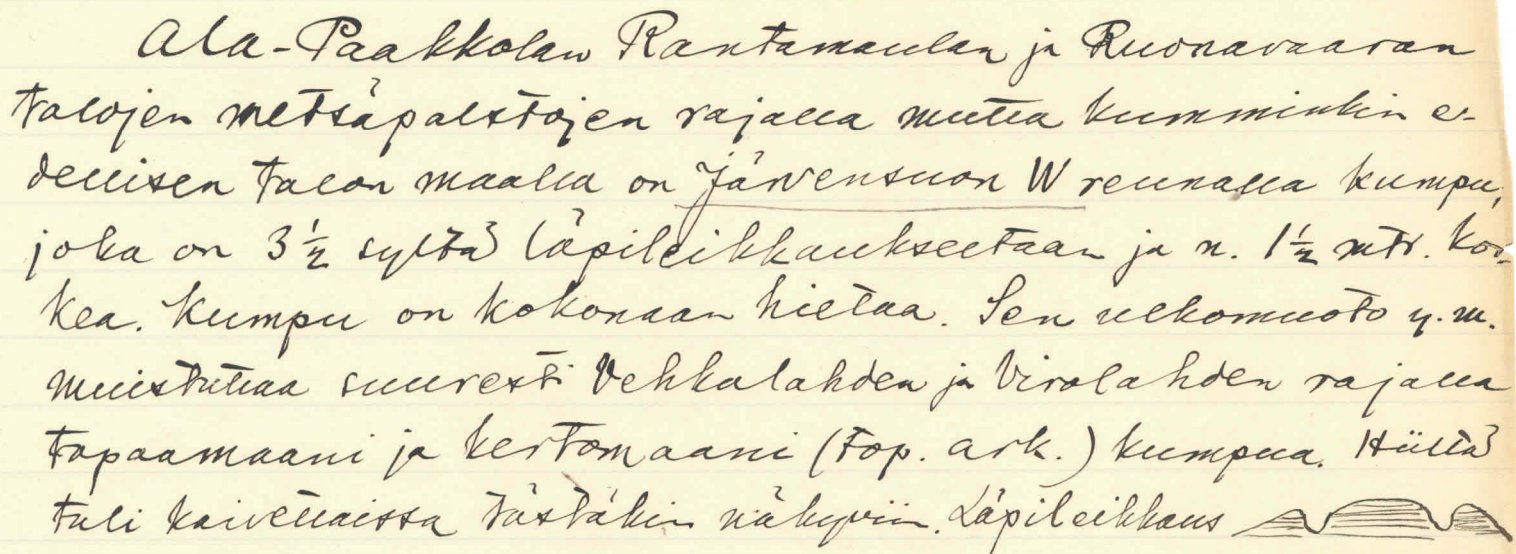 Ala-Paakkolan Rantamaulan ja Ruonavaaran
talojen metsäpalstojen rajalla mutta kumminkin e-
dellisen talon maalla on Järvensuon W reunalla kumpu,
joka on 3 1/2 syltä läpileikkaukseltaan ja n. 1 1/2 mtr. kor-
kea. Kumpu on kokonaan hietaa. Sen ulkomuoto y.m.
muistuttaa suuresti Vehkalahden ja Virolahden rajalla
tapaamaani ja kertomaani (top. ark.) kumpua. Hiiltä
tuli kaivettaissa tästäkin näkyviin. Läpileikkaus